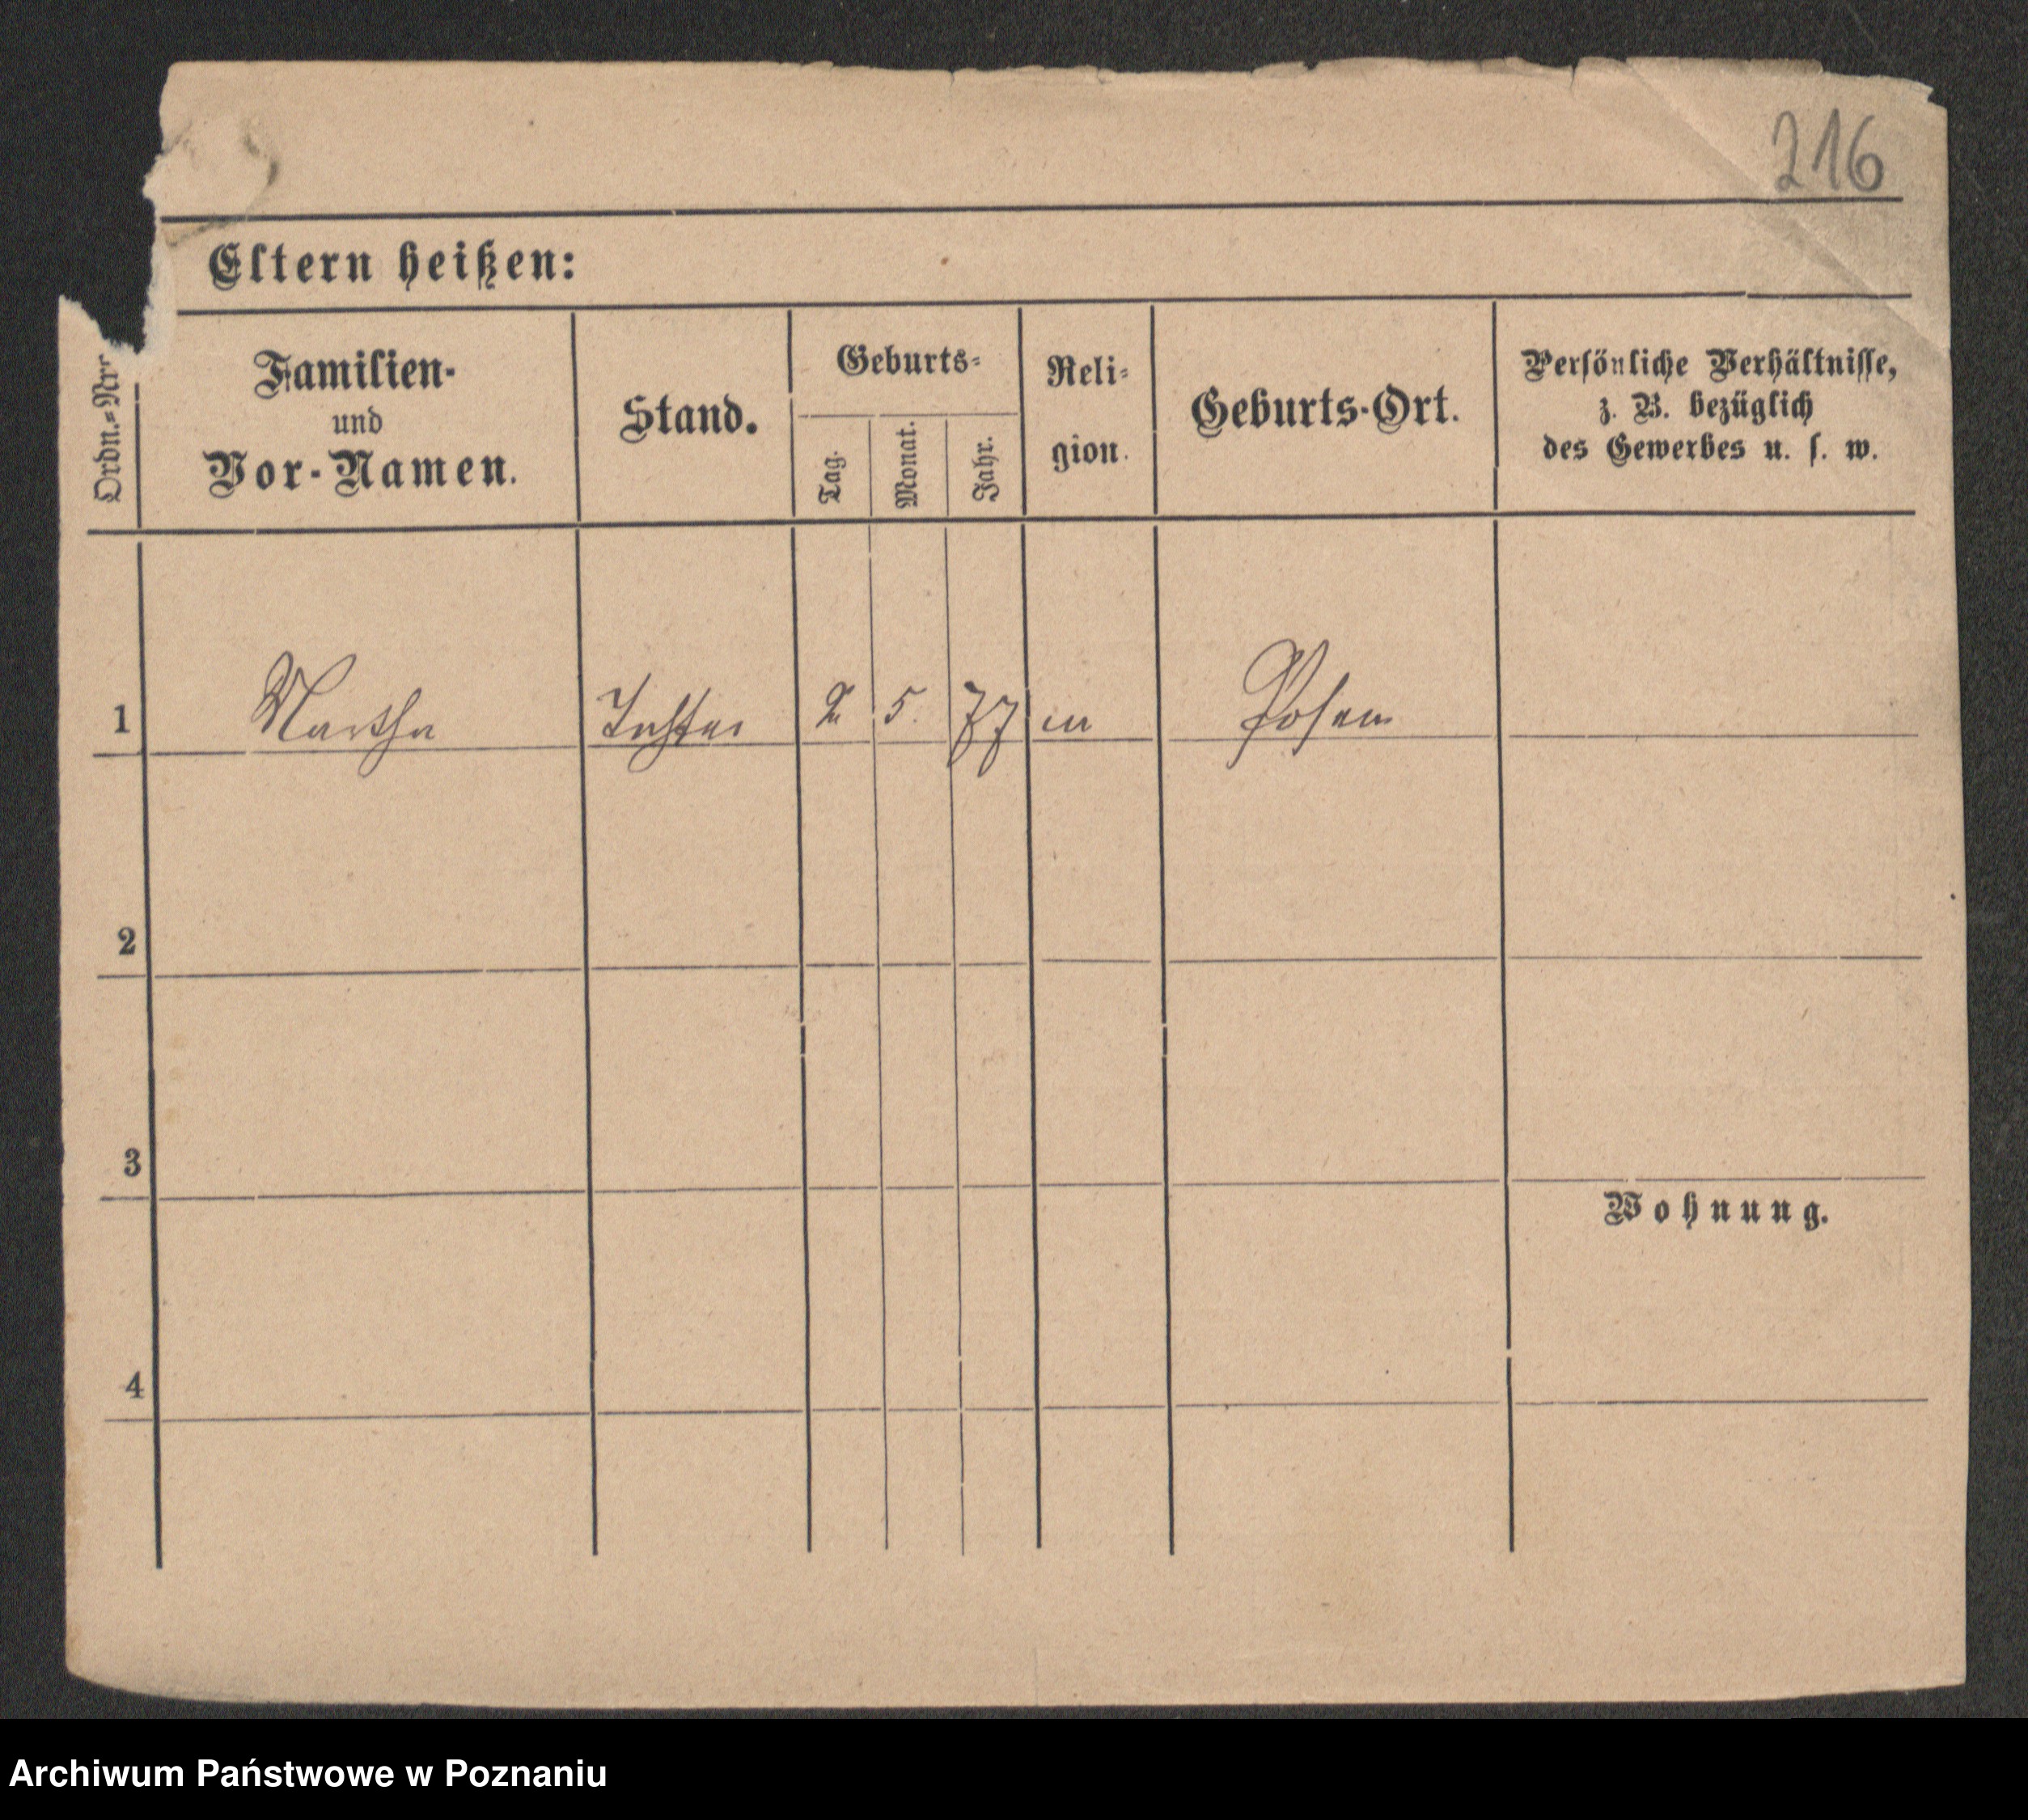 216
Eltern heißen:
Ordn.-Nr.
Familien-
und
Vor-Namen.
Stand.
Geburts-
Tag.
Monat.
Jahr.
Reli-
gion.
Geburts-Ort.
Persönliche Verhältnisse,
z. B. bezüglich
des Gewerbes u. s. w.
1 Martha Tochter 2 5. 77 Posen
2
3
Wohnung.
4
Archiwum Państwowe w Poznaniu